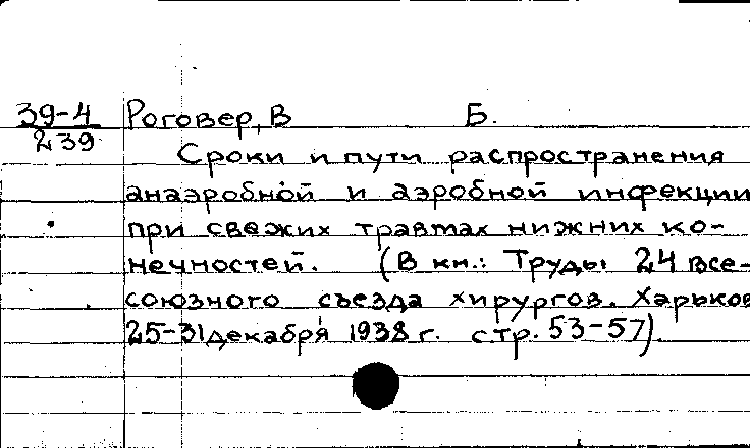 39-4 Роговер, В Б.
239
Сроки и пути распространения
анаэробной и аэробной инфекции
при свежих травмах нижних ко-
нечностей. (В кн.: Труды 24 все-
союзного съезда хирургов. Харьков
25-31 декабря 1938 г. стр. 53-57).